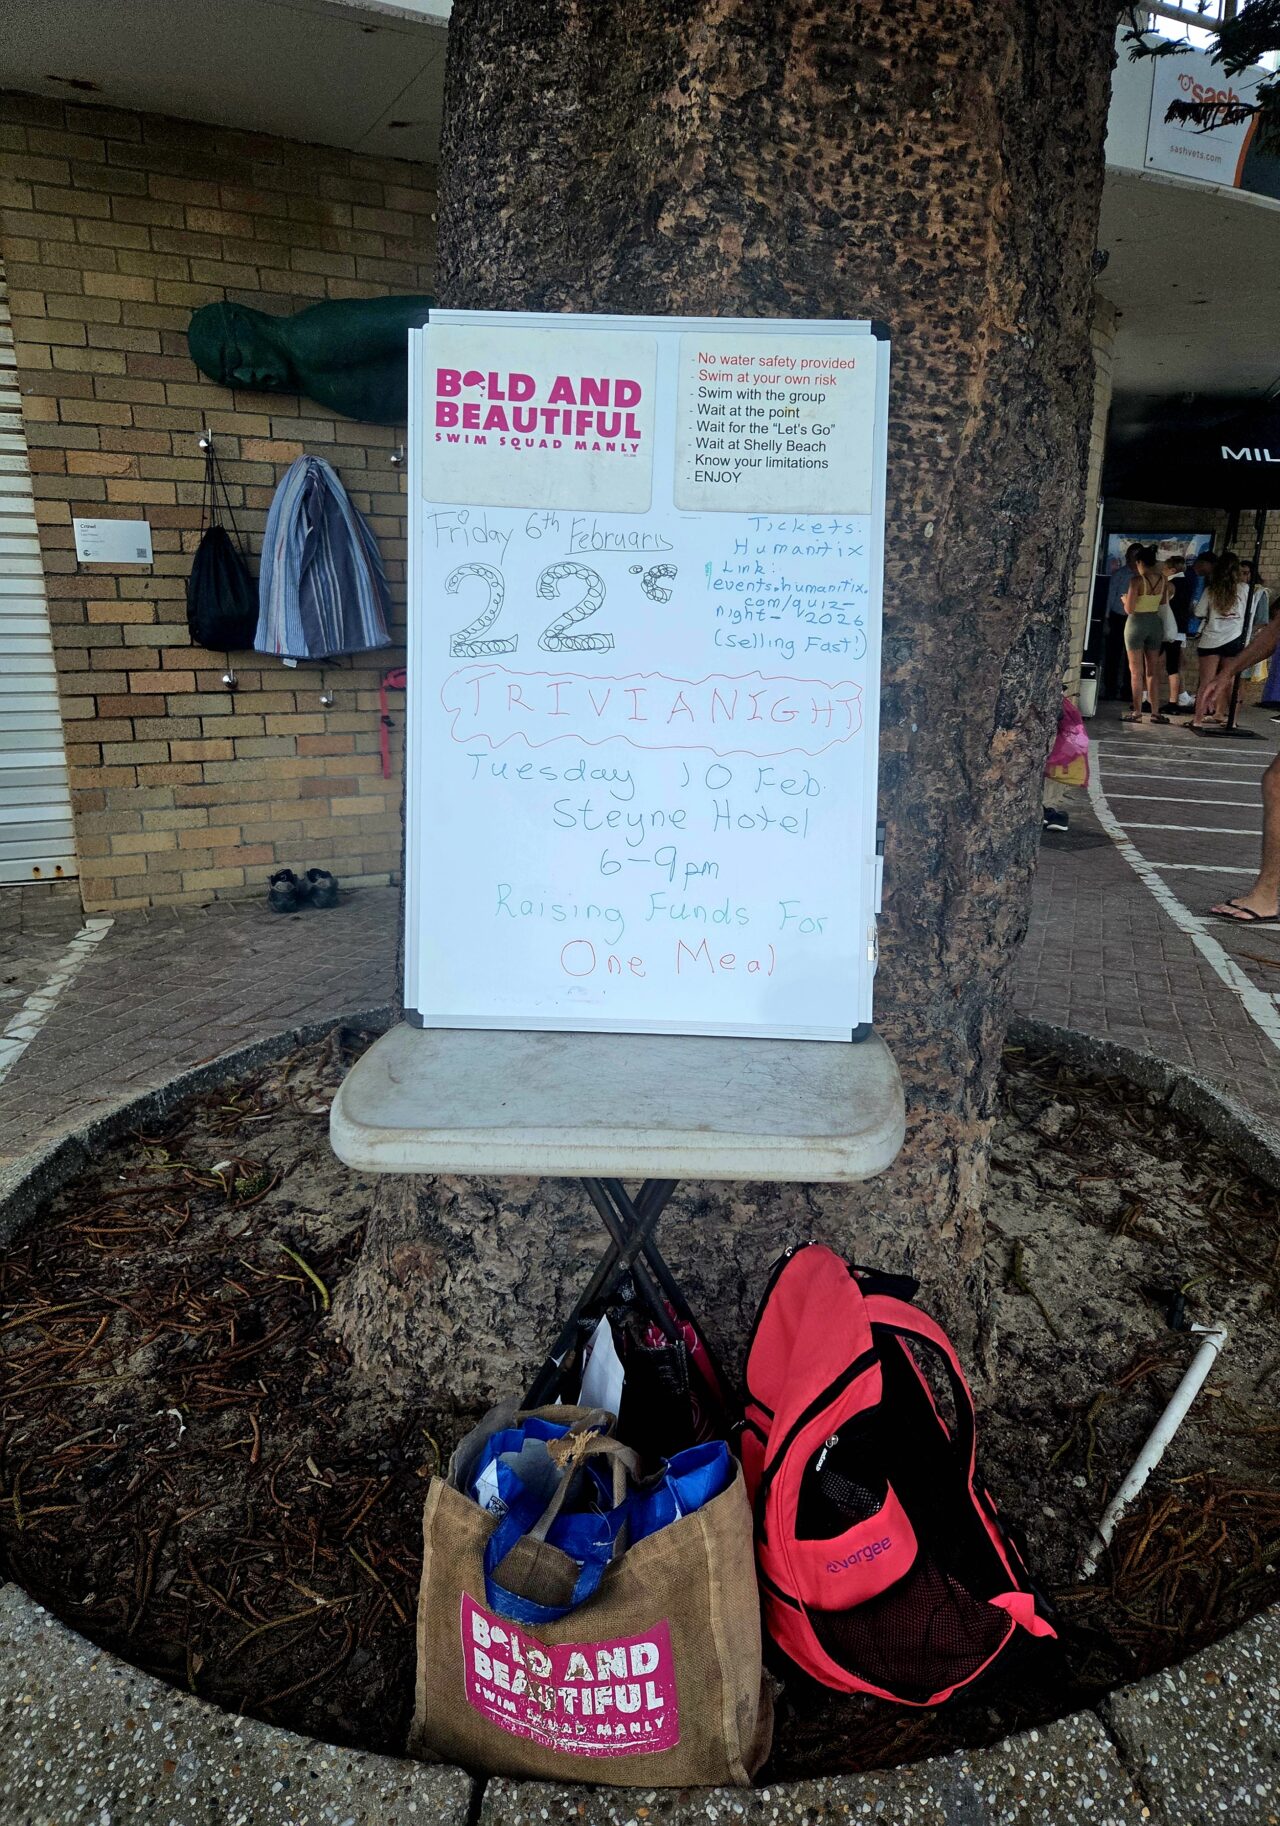 sash
sashvets.com
BOLD AND
BEAUTIFUL
SWIM SQUAD MANLY
- No water safety provided
- Swim at your own risk
- Swim with the group
- Wait at the point
- Wait for the "Let's Go"
- Wait at Shelly Beach
- Know your limitations
- ENJOY
MIL
Friday 6th February
22°C
Tickets:
Humanitix
Link:
events.humanitix.
com/quiz-
night-2026
(Selling Fast!)
TRIVIA NIGHT
Tuesday 10 Feb.
Steyne Hotel
6-9pm
Raising Funds For
One Meal
Crawl
vorgee
BOLD AND
BEAUTIFUL
SWIM SQUAD MANLY